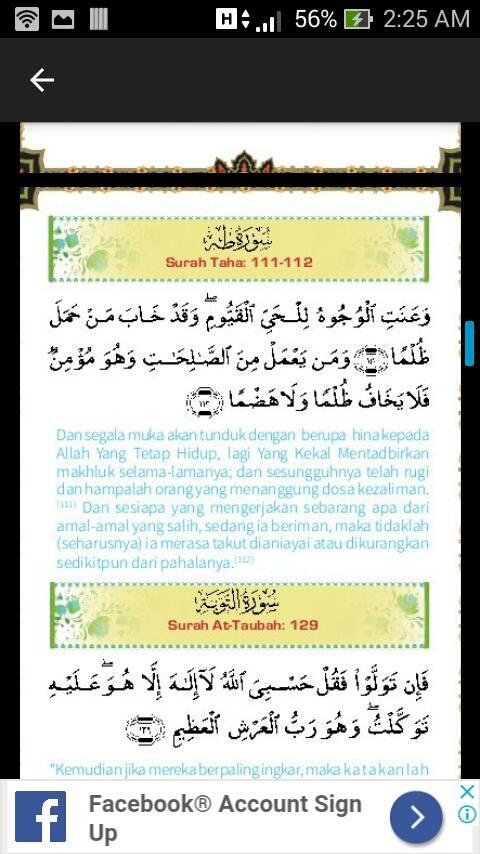 H 56% 2:25 AM
سُوْرَةُ طٰهٰ
Surah Taha: 111-112
وَعَنَتِ ٱلْوُجُوهُ لِلْحَىِّ ٱلْقَيُّومِ ۖ وَقَدْ خَابَ مَنْ حَمَلَ
ظُلْمًا ﴿١١١﴾ وَمَن يَعْمَلْ مِنَ ٱلصَّـٰلِحَـٰتِ وَهُوَ مُؤْمِنٌ
فَلَا يَخَافُ ظُلْمًا وَلَا هَضْمًا ﴿١١٢﴾
Dan segala muka akan tunduk dengan berupa hina kepada
Allah Yang Tetap Hidup, lagi Yang Kekal Mentadbirkan
makhluk selama-lamanya; dan sesungguhnya telah rugi
dan hampalah orang yang menanggung dosa kezaliman.
(111) Dan sesiapa yang mengerjakan sebarang apa dari
amal-amal yang salih, sedang ia beriman, maka tidaklah
(seharusnya) ia merasa takut dianiayai atau dikurangkan
sedikitpun dari pahalanya.(112)
سُوْرَةُ التَّوْبَةِ
Surah At-Taubah: 129
فَإِن تَوَلَّوْا۟ فَقُلْ حَسْبِىَ ٱللَّهُ لَآ إِلَـٰهَ إِلَّا هُوَ ۖ عَلَيْهِ
تَوَكَّلْتُ ۖ وَهُوَ رَبُّ ٱلْعَرْشِ ٱلْعَظِيمِ ﴿١٢٩﴾
"Kemudian jika mereka berpaling ingkar, maka katakanlah
Facebook® Account Sign
Up